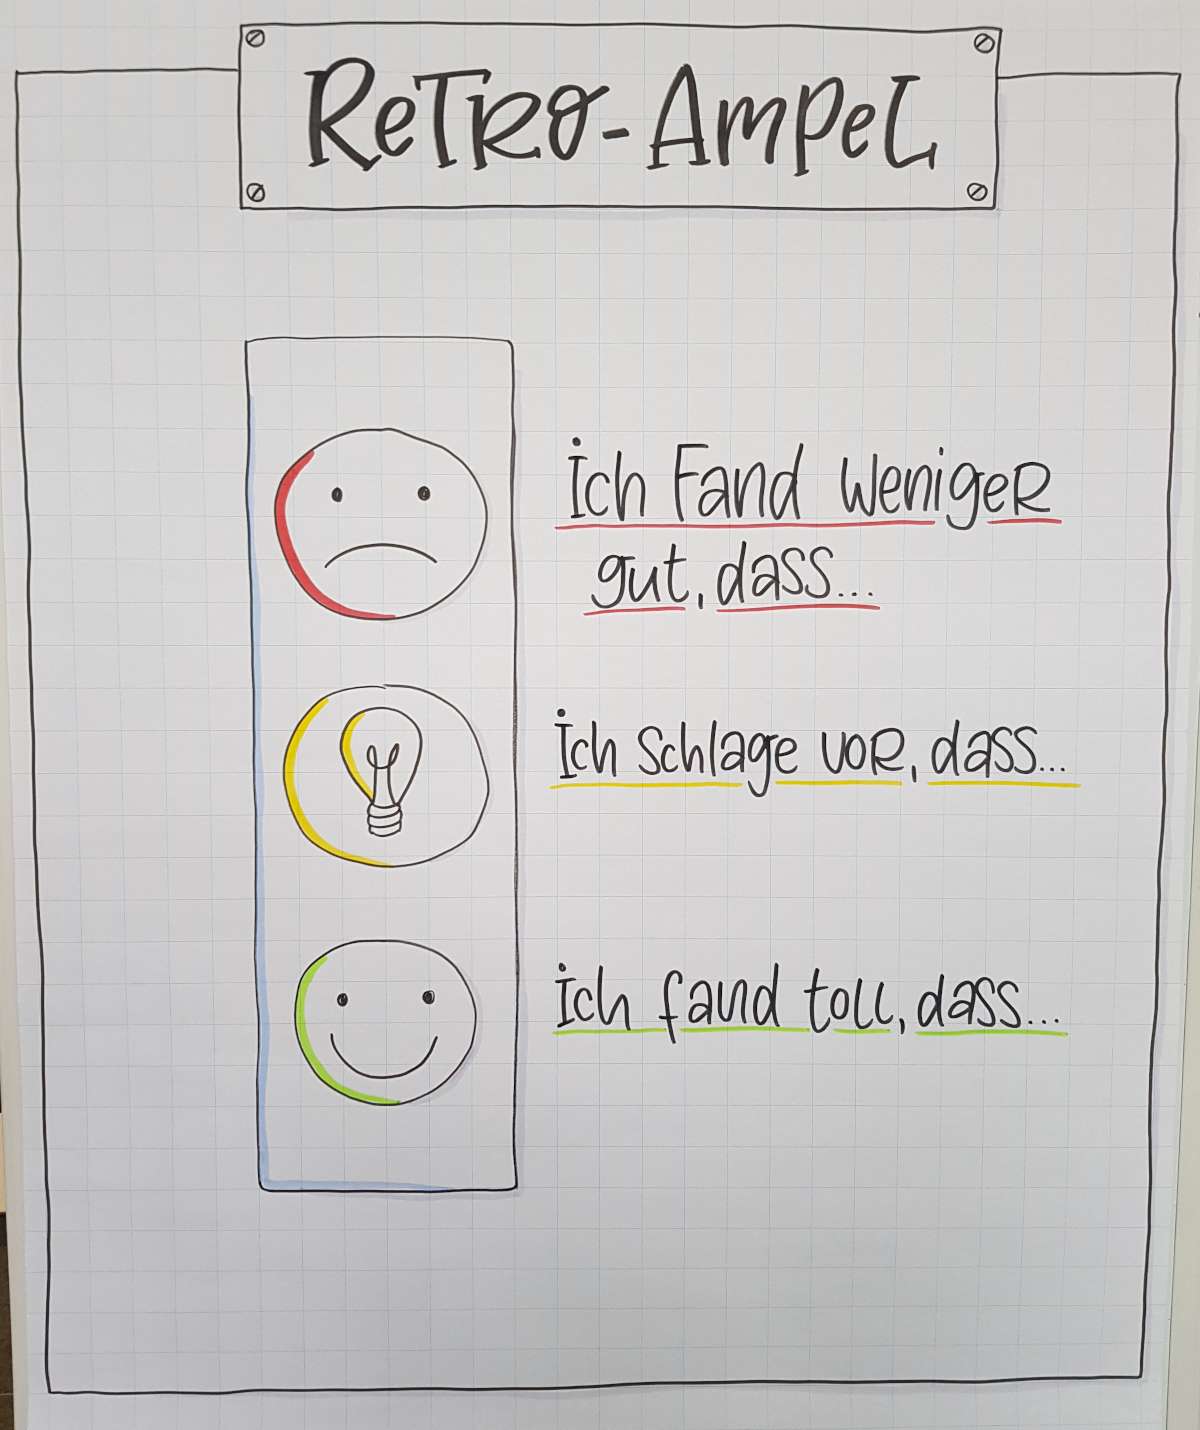 Retro-Ampel
Ich fand weniger
gut, dass...
Ich schlage vor, dass...
Ich fand toll, dass...